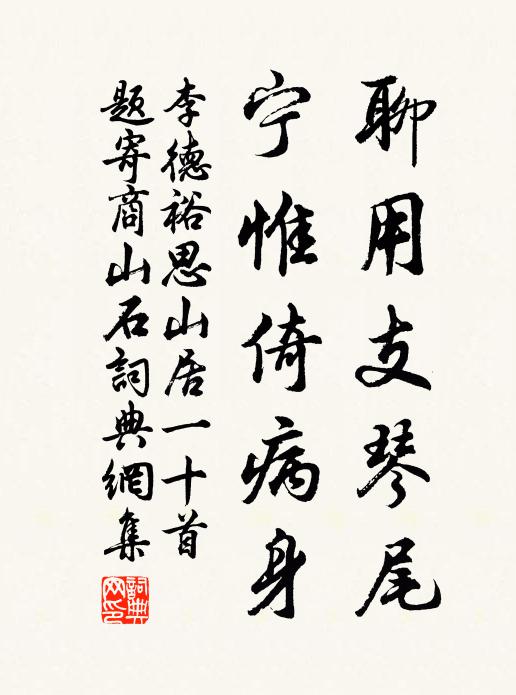 聊用支琴尾
宁惟倚病身
李德裕思山居一十首
题寄商山石詞典網集
詞典网印